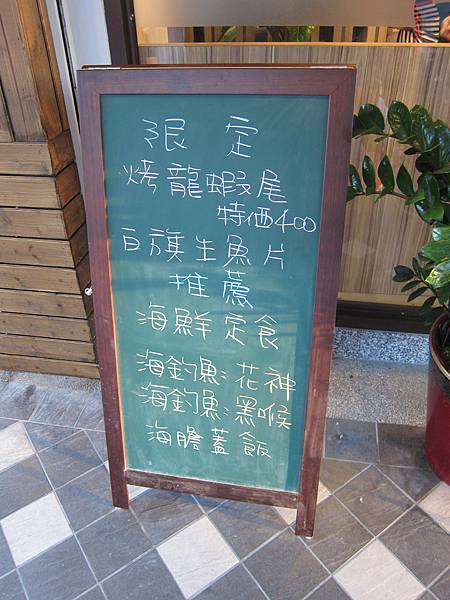 限 定
烤龍蝦尾
特価400
白旗生魚片
推薦
海鮮定食
海釣魚:花神
海釣魚:黑喉
海膽蓋飯